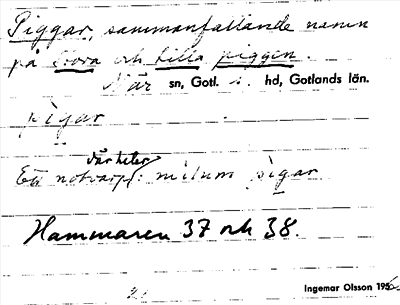 Piggar, sammanfallande namn
på Stora och Lilla piggen.
När sn, Gotl. s. hd, Gotlands län.
pigar
där heter
Ett notvarp: milum pigar
Hammaren 37 och 38.
Ingemar Olsson 195